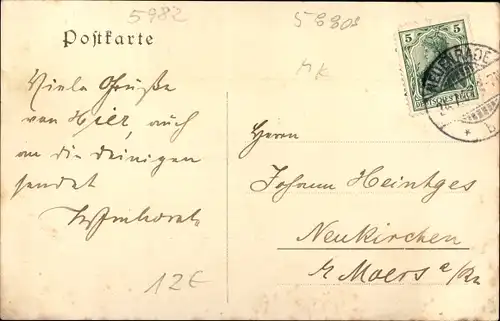 5982
58801
MK
Postkarte
5
5
DEUTSCHES REICH
NEUENRADE
* b
Viele Grüße
von Hier, auch
an die deinigen
sendet
Herrn
Johann Heintges
Neukirchen
b/ Moers a/Rh
12E